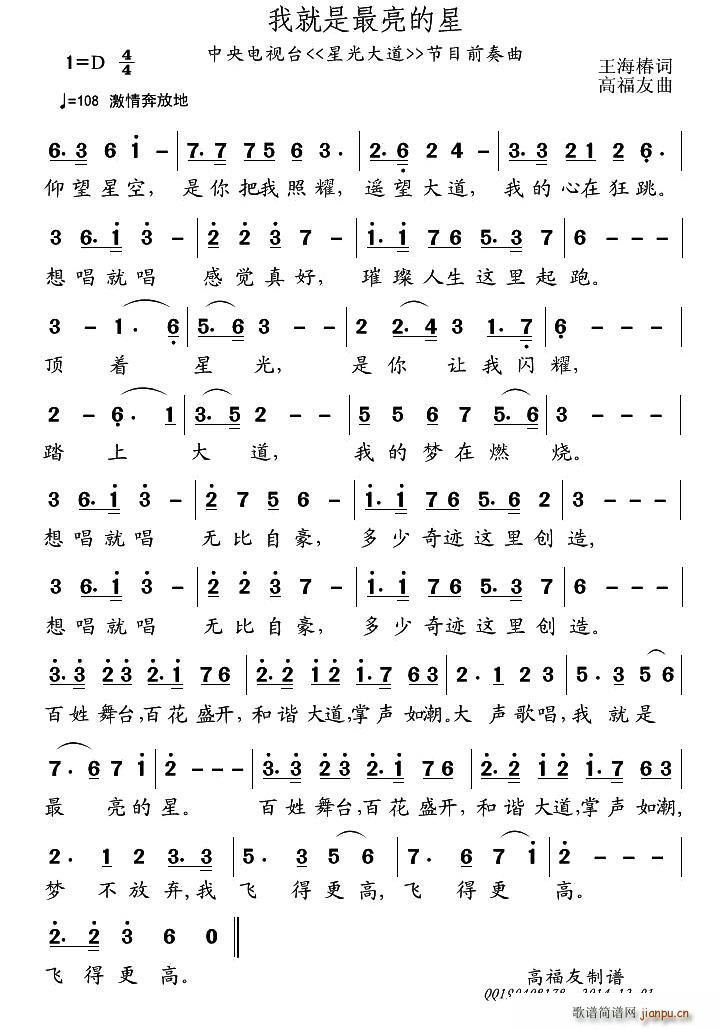 我就是最亮的星
中央电视台<<星光大道>>节目前奏曲
1=D 4/4
王海椿词
高福友曲
♩=108 激情奔放地
6. 3 6 1 - | 7. 7 7 5 6 3 . | 2. 6 2 4 - | 3. 3 2 1 2 6 . |
仰望星空, 是你把我照耀, 遥望大道, 我的心在狂跳。
3 6. 1 3 - | 2 2 3 7 - | 1. 1 7 6 5. 3 7 | 6 - - - |
想唱就唱 感觉真好, 璀璨人生这里起跑。
3 - 1 . 6 | 5. 6 3 - - | 2 2. 4 3 1. 7 | 6 - - - |
顶着星光, 是你让我闪耀,
2 - 6 . 1 | 3. 5 2 - - | 5 5 6 7 5. 6 | 3 - - - |
踏上大道, 我的梦在燃烧。
3 6. 1 3 - | 2 7 5 6 - | 1. 1 7 6 5. 6 2 | 3 - - - |
想唱就唱 无比自豪, 多少奇迹这里创造,
3 6. 1 3 - | 2 2 3 7 - | 1. 1 7 6 5. 3 7 | 6 - - - |
想唱就唱 无比自豪, 多少奇迹这里创造。
3. 3 2 3 2. 1 7 6 | 2. 2 1 2 1. 7 6 3 | 2 . 1 2 3 | 5 . 3 5 6 |
百姓舞台,百花盛开,和谐大道,掌声如潮。大声歌唱,我就是
7 . 6 7 1 | 2 - - - | 3. 3 2 3 2. 1 7 6 | 2. 2 1 2 1. 7 6 3 |
最亮的星。 百姓舞台,百花盛开,和谐大道,掌声如潮,
2 . 1 2 3. 3 | 5 . 3 5 6 | 7 . 6 7 1 | 2 - - - |
梦不放弃,我飞得更高,飞得更高。
2. 2 3 6 0 ‖
飞得更高。
高福友制谱
歌谱简谱网
jianpu.cn